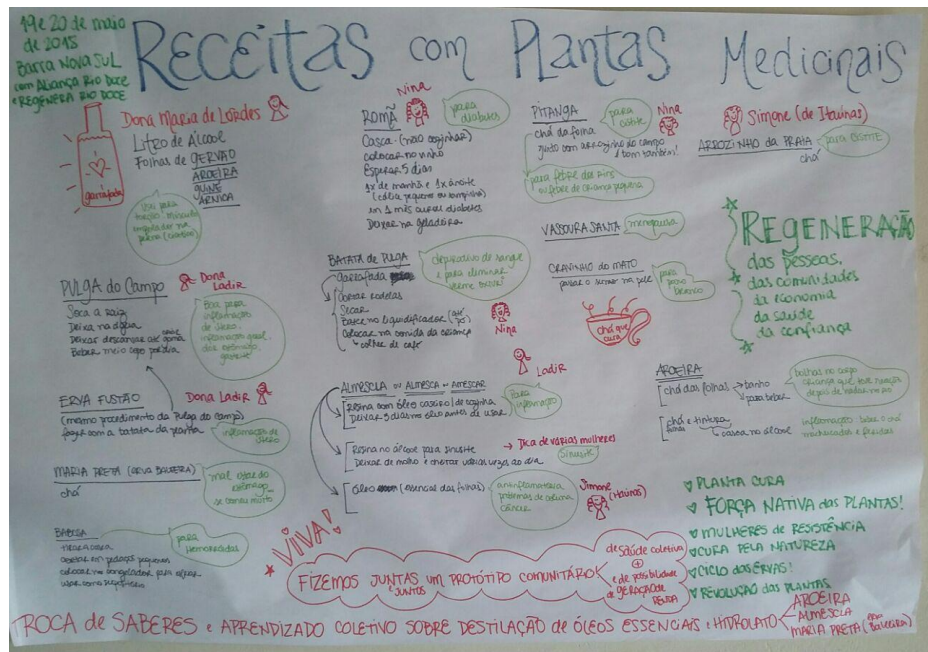 19 e 20 de maio
de 2018
Barra Nova Sul
com Aliança Rio Doce
e Regenera Rio Doce
RECEITAS com PLANTAS MEDICINAIS
garrafada
Dona Maria de Lordes
Litro de Álcool
Folhas de GERVÃO
AROEIRA
GUINÉ
ARNICA
PULGA do Campo
Dona Ladir
Seca a raiz
Deixa na água
Beber meio copo por dia
Boa para
inflamação
de útero
inflamação geral
dor estômago
gastrite
ERVA FUSTÃO
Dona Ladir
(mesmo procedimento da Pulga do Campo)
fazer com a batata da planta
inflamação de
útero
MARIA PRETA (ERVA BALEEIRA)
chá
mal estar do
estômago
se comeu muito
BABOSA
tirar a casca
cortar em pedaços pequenos
colocar no congelador para
usar como supositório
para
hemorróidas
Nina
ROMÃ
para
diabetes
Casca (não cozinhar)
colocar no vinho
Esperar 5 dias
1x de manhã e 1x à noite
em 1 mês curou diabetes
Deixar na geladeira
BATATA de PULGA
garrafada
depurativo do sangue
e para eliminar
Cortar rodelas
Secar
Bater no liquidificador (até pó)
Colocar na comida da criança
colher de café
Nina
Ladir
ALMESCLA ou ALMESCA ou AMESCAR
Resina com óleo caseiro/de cozinha
Deixar 3 dias no óleo antes de usar
Para
inflamação
Resina no álcool para sinusite
Deixar de molho e cheirar várias vezes ao dia
→ Dica de várias mulheres
sinusite
Óleo (essencial das folhas)
antiinflamatória
problemas de coluna
câncer
Simone
(Itaúnas)
PITANGA
para
tosse
Nina
chá da folha
junto com arrozinho do campo
é bom também!
para febre dos rins
ou febre de criança pequena
VASSOURA SANTA
menopausa
CRAVINHO do MATO
passar o sumo na pele
para
pano
branco
chá que
cura
Simone (de Itaúnas)
ARROZINHO DA PRAIA
para CISTITE
chá
REGENERAÇÃO
das pessoas,
das comunidades
da economia
da saúde
da confiança
AROEIRA
chá das folhas → banho
para beber
bolhas no corpo
criança que teve reação
depois de nadar no rio
chá e tintura
folhas
casca no álcool
inflamação: beber o chá
machucados e feridas
PLANTA CURA
FORÇA NATIVA das PLANTAS!
MULHERES DE RESISTÊNCIA
CURA PELA NATUREZA
CICLO das ERVAS!
REVOLUÇÃO das PLANTAS
VIVA!
FIZEMOS JUNTAS UM PROTÓTIPO COMUNITÁRIO
e JUNTOS
de saúde coletiva
+
e de possibilidade
de geração de
renda
TROCA de SABERES e APRENDIZADO COLETIVO SOBRE DESTILAÇÃO de ÓLEOS ESSENCIAIS e HIDROLATO
AROEIRA
ALMESCLA
MARIA PRETA (erva Baleeira)